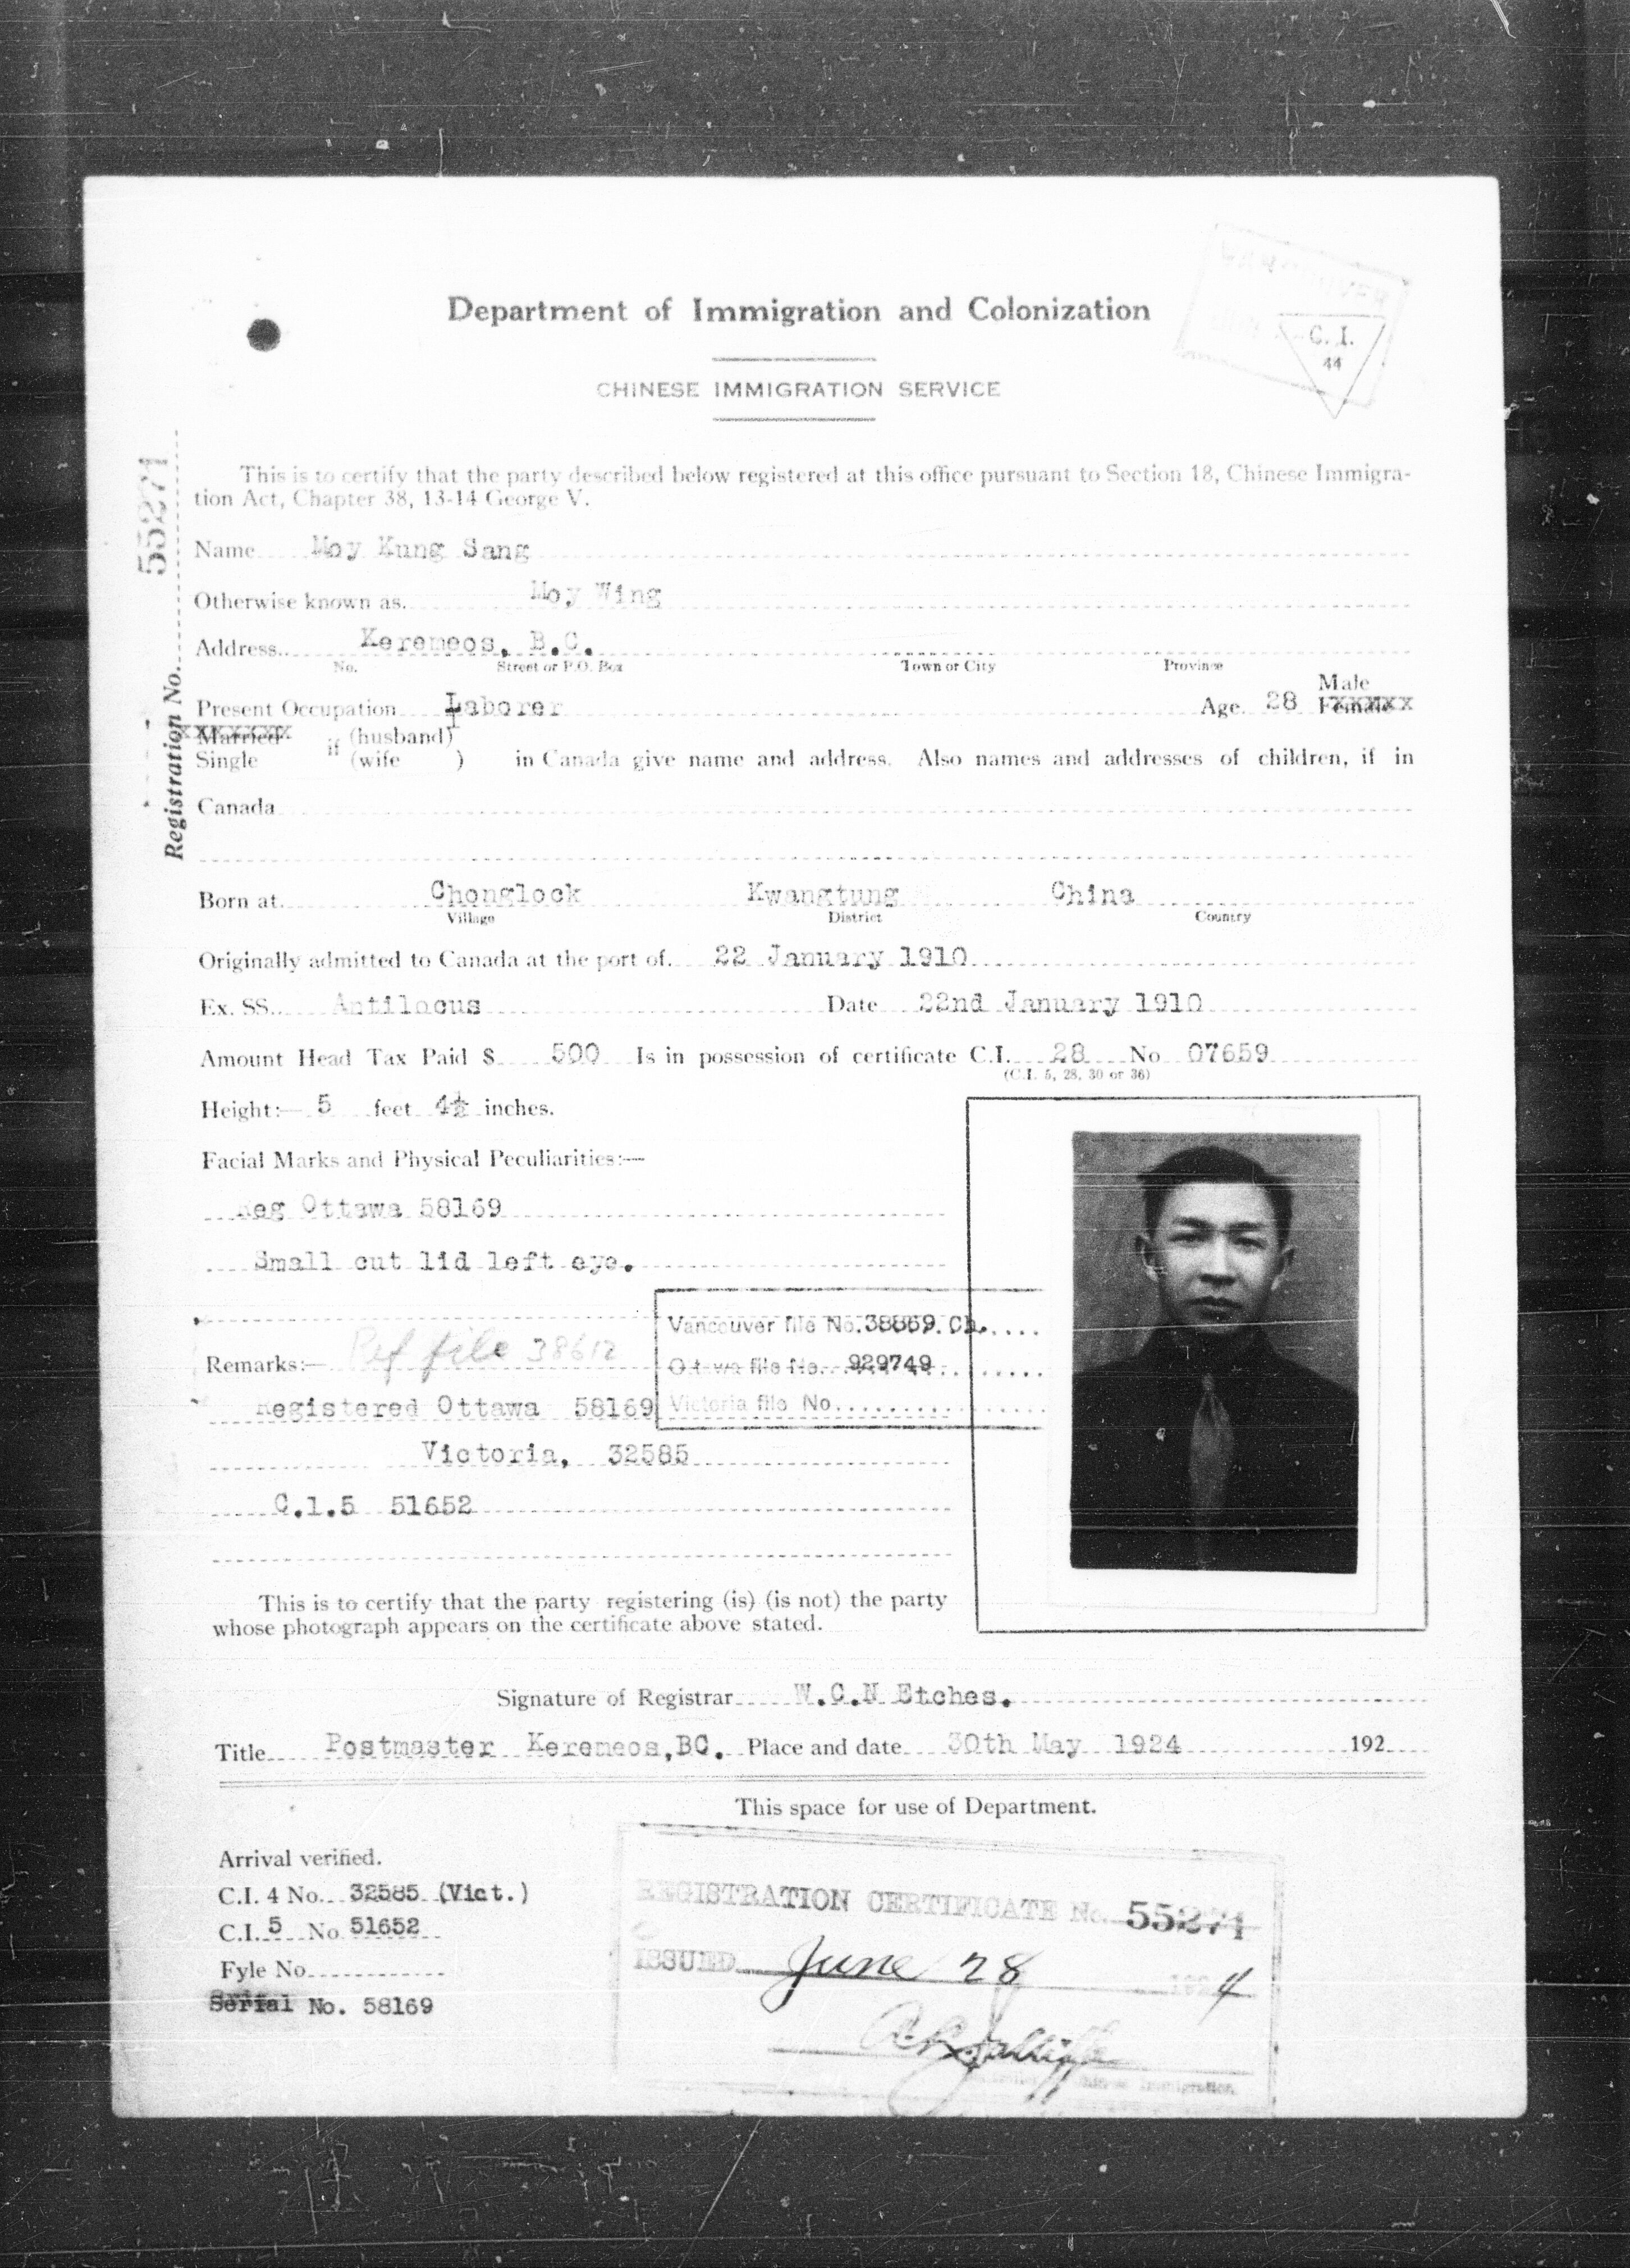 Department of Immigration and Colonization
C. I.
44
CHINESE IMMIGRATION SERVICE
Registration No. 55271
This is to certify that the party described below registered at this office pursuant to Section 18, Chinese Immigra-
tion Act, Chapter 38, 13-14 George V.
Name Moy Kung Sang
Otherwise known as. Moy Wing
Address. Keremeos, B.C.
No. Street or P.O. Box Town or City Province
Male
Present Occupation Laborer Age. 28 Female
Married if (husband)
Single (wife ) in Canada give name and address. Also names and addresses of children, if in
Canada
Born at. Chonglock Kwangtung China
Village District Country
Originally admitted to Canada at the port of. 22 January 1910
Ex. SS. Antilocus Date 22nd January 1910
Amount Head Tax Paid $ 500 Is in possession of certificate C.I. 28 No 07659
(C.I. 5, 28, 30 or 36)
Height:— 5 feet 4½ inches.
Facial Marks and Physical Peculiarities:—
Reg Ottawa 58169
Small cut lid left eye.
Vancouver file No. 38869. Ch.
Ottawa file No. 929749
Victoria file No.
Remarks:— Ref file 38612
Registered Ottawa 58169
Victoria, 32585
C.1.5 51652
This is to certify that the party registering (is) (is not) the party
whose photograph appears on the certificate above stated.
Signature of Registrar W.C.N Etches.
Title Postmaster Keremeos, BC. Place and date 30th May 1924 192
This space for use of Department.
Arrival verified.
C.I. 4 No. 32585 (Vict.)
C.I. 5 No 51652
Fyle No.
Serial No. 58169
REGISTRATION CERTIFICATE No. 55271
ISSUED June 28 1924
Chinese Immigration